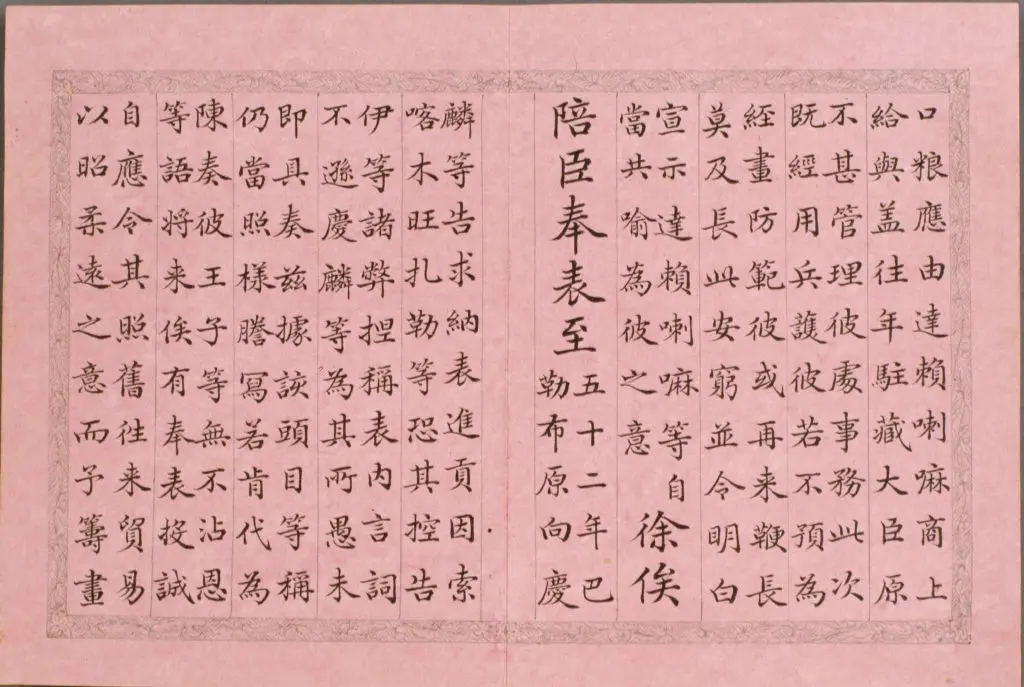 口粮應由達賴喇嘛商上
給與盖往年駐藏大臣原
不甚管理彼處事務此次
既經用兵護彼若不預為
經畫防範彼或再来鞭長
莫及長此安窮並令明白
宣示達賴喇嘛等自
當共喻為彼之意
徐俟
陪臣奉表至
五十二年巴
勒布原向慶
麟等告求納表進貢因索
喀木旺扎勒等恐其控告
伊等諸弊捏稱表内言詞
不遜慶麟等為其所愚未
即具奏兹據該頭目等稱
仍當照樣謄寫若肯代為
陳奏彼王子等無不沾恩
等語將来俟有奉表投誠
自應令其照舊往来貿易
以昭柔遠之意而予籌畫